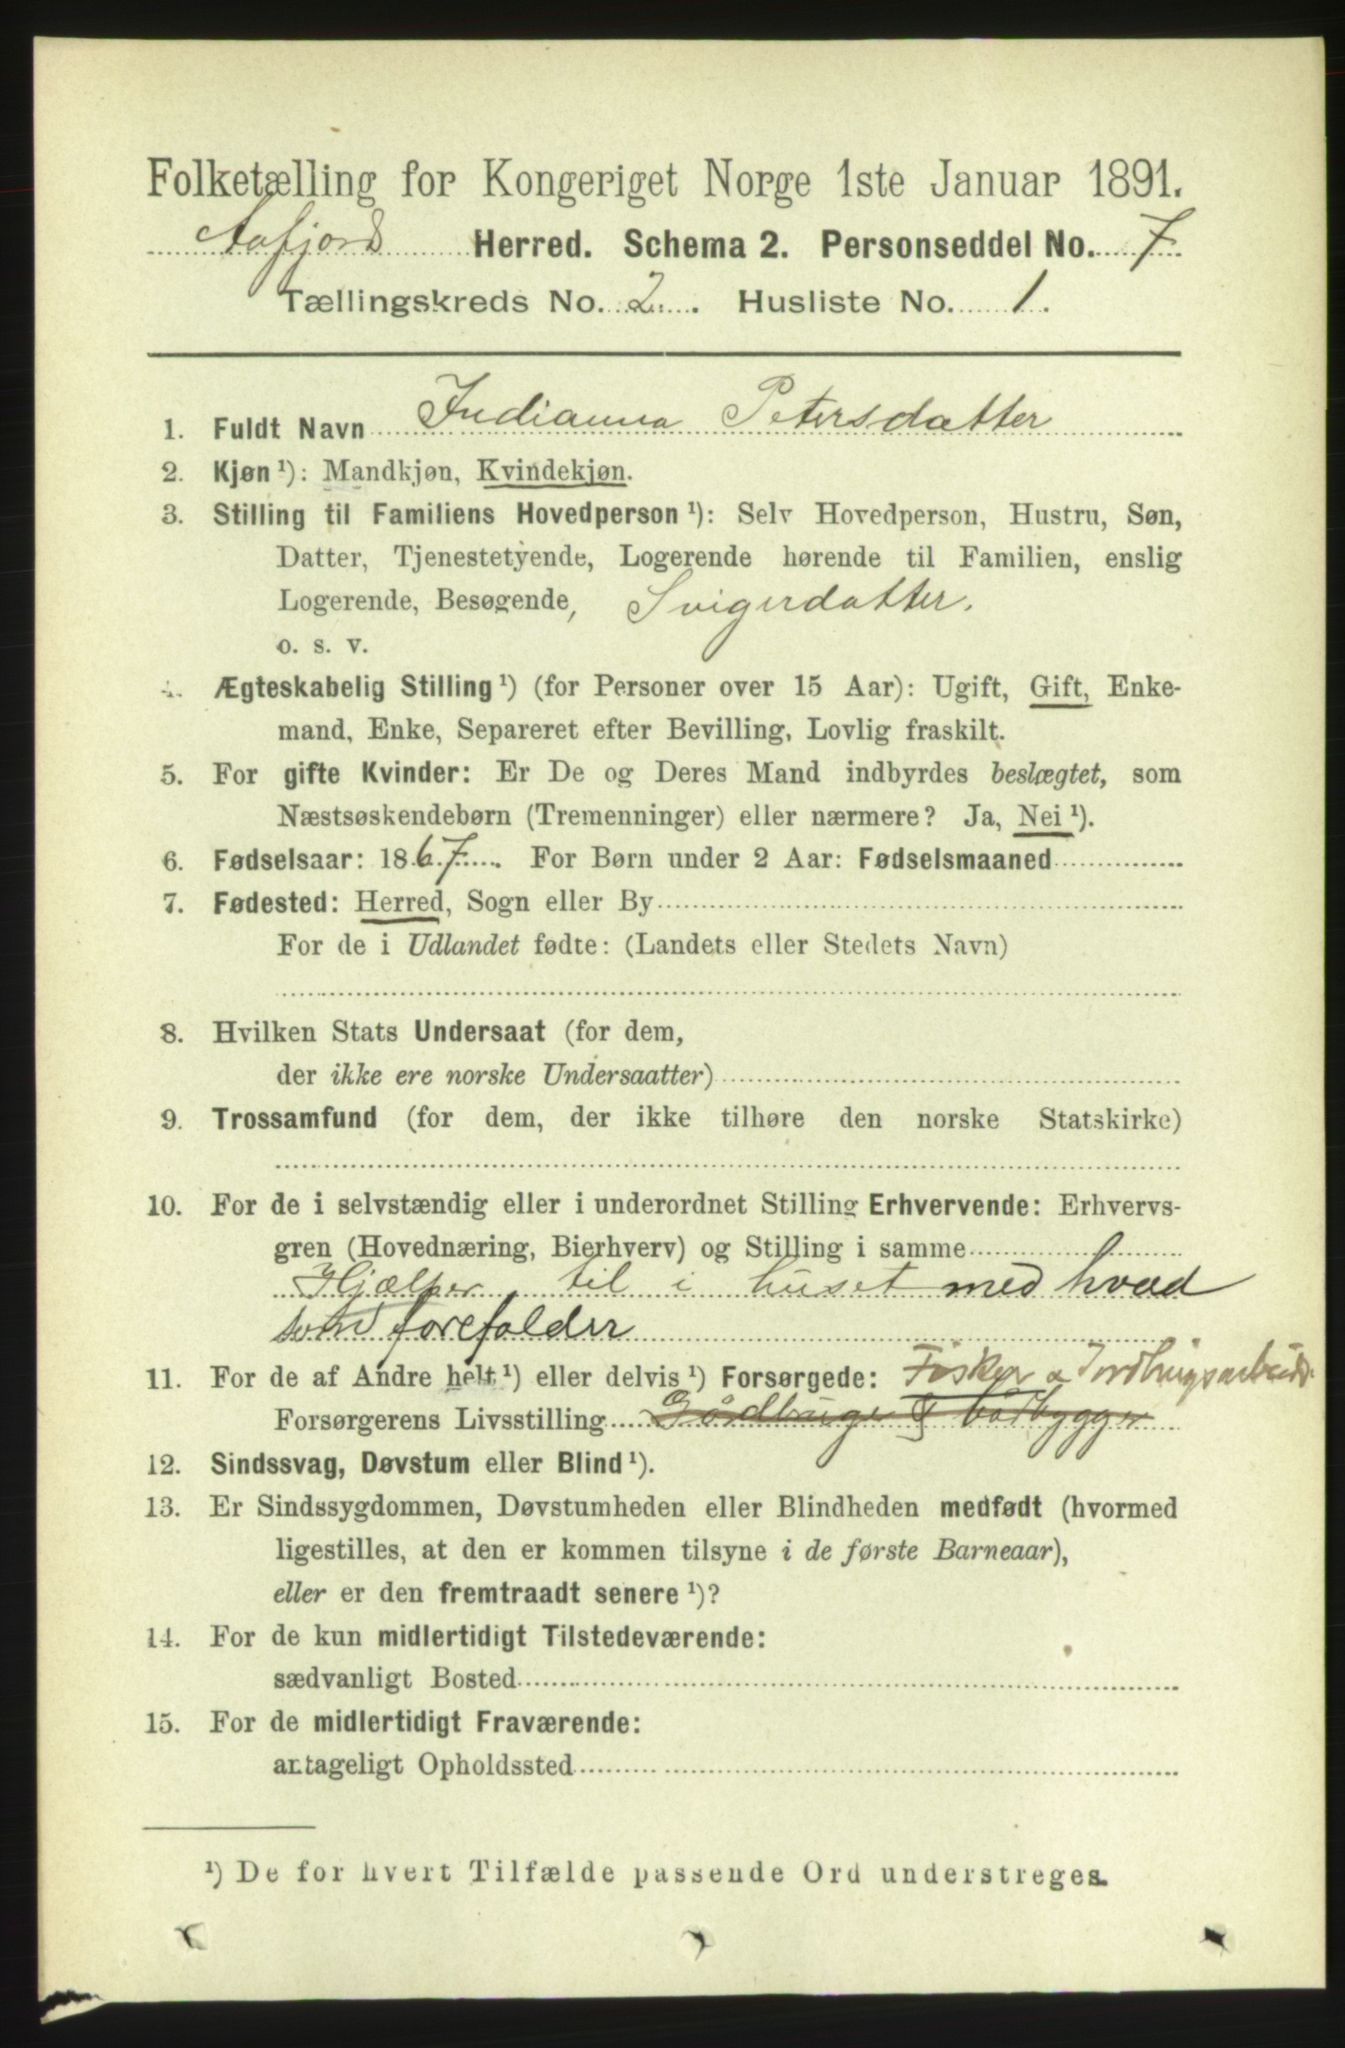 Folketælling for Kongeriget Norge 1ste Januar 1891.
Aafjord Herred. Schema 2. Personseddel No. 7
Tællingskreds No. 2. Husliste No. 1.
1. Fuldt Navn Indianna Petersdatter
2. Kjøn ¹): Mandkjøn, Kvindekjøn.
3. Stilling til Familiens Hovedperson ¹): Selv Hovedperson, Hustru, Søn,
Datter, Tjenestetyende, Logerende hørende til Familien, enslig
Logerende, Besøgende, Svigerdatter.
o. s. v.
4. Ægteskabelig Stilling ¹) (for Personer over 15 Aar): Ugift, Gift, Enke-
mand, Enke, Separeret efter Bevilling, Lovlig fraskilt.
5. For gifte Kvinder: Er De og Deres Mand indbyrdes beslægtet, som
Næstsøskendebørn (Tremenninger) eller nærmere? Ja, Nei ¹).
6. Fødselsaar: 1867. For Børn under 2 Aar: Fødselsmaaned
7. Fødested: Herred, Sogn eller By
For de i Udlandet fødte: (Landets eller Stedets Navn)
8. Hvilken Stats Undersaat (for dem,
der ikke ere norske Undersaatter)
9. Trossamfund (for dem, der ikke tilhøre den norske Statskirke)
10. For de i selvstændig eller i underordnet Stilling Erhvervende: Erhvervs-
gren (Hovednæring, Bierhverv) og Stilling i samme
Hjælper til i huset med hvad
som forefalder
11. For de af Andre helt ¹) eller delvis ¹) Forsørgede: Fisker &
Forsørgerens Livsstilling Gårdbruger & båtbygger
12. Sindssvag, Døvstum eller Blind ¹).
13. Er Sindssygdommen, Døvstumheden eller Blindheden medfødt (hvormed
ligestilles, at den er kommen tilsyne i de første Barneaar),
eller er den fremtraadt senere ¹)?
14. For de kun midlertidigt Tilstedeværende:
sædvanligt Bosted
15. For de midlertidigt Fraværende:
antageligt Opholdssted
¹) De for hvert Tilfælde passende Ord understreges.